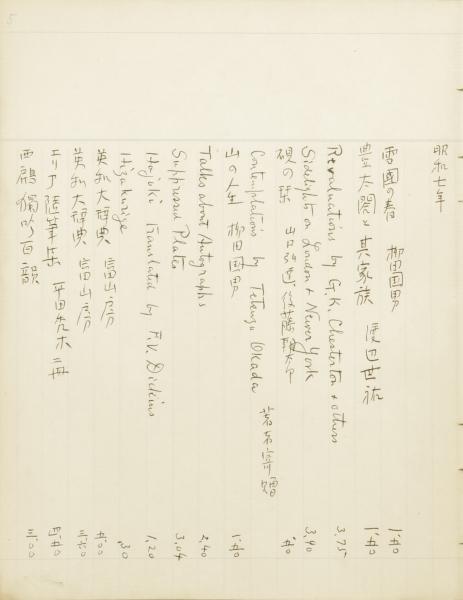 5
昭和七年
雪国の春 柳田国男 1.50
豊太閤と其家族 渡辺世祐 1.50
Revaluations by G.K. Chesterton & others 3.75
Sidelight on London & Newer York 3.40
硯の栞 山口弘達 後藤朝太郎 .50
Contemplations by Tetsuzo Okada 著者寄贈
山の人生 柳田国男 1.50
Talks about Autographs 2.40
Suppressed Plates 3.04
Hojoki Translated by F.V. Dickins 1.20
Hizakurige .30
英和大辞典 冨山房 5.00
英和大辞典 冨山房
エリア随筆集 平田禿木 二冊
西鶴獨吟百韻 3.00